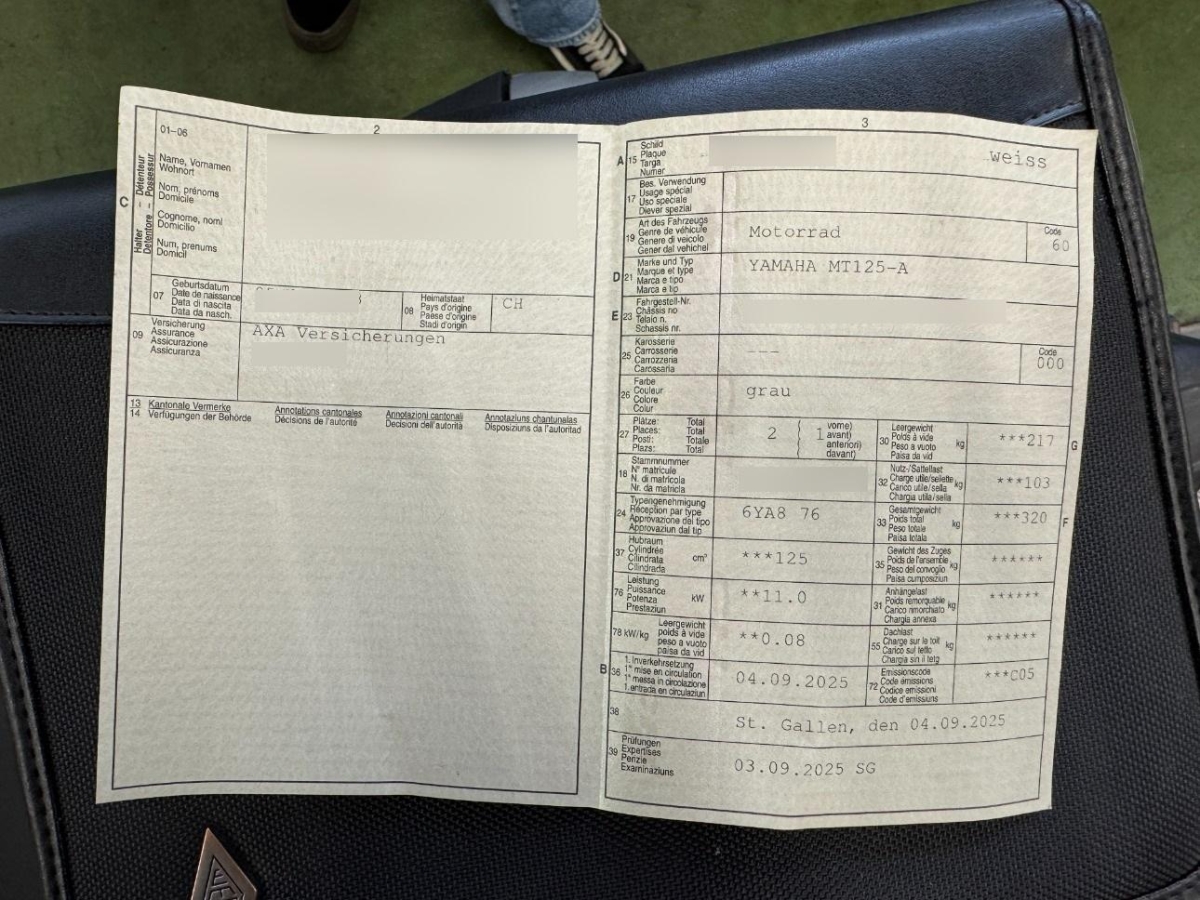 2
01-06
C
Halter – Détenteur
Detentore – Possessur
Name, Vornamen
Wohnort
Nom, prénoms
Domicile
Cognome, nomi
Domicilio
Num, prenums
Domicil
07
Geburtsdatum
Date de naissance
Data di nascita
Data da nasch.
08
Heimatstaat
Pays d'origine
Paese d'origine
Stadi d'origin
CH
09
Versicherung
Assurance
Assicurazione
Assicuranza
AXA Versicherungen
13 Kantonale Vermerke Annotations cantonales Annotazioni cantonali Annotaziuns chantunalas
14 Verfügungen der Behörde Décisions de l'autorité Decisioni dell'autorità Disposiziuns da l'autoritad
3
A 15
Schild
Plaque
Targa
Numer
weiss
17
Bes. Verwendung
Usage spécial
Uso speciale
Diever spezial
19
Art des Fahrzeugs
Genre de véhicule
Genere di veicolo
Gener dal vehichel
Motorrad
Code
60
D 21
Marke und Typ
Marque et type
Marca e tipo
Marca e tip
YAMAHA MT125-A
E 23
Fahrgestell-Nr.
Châssis no
Telaio n.
Schassis nr.
25
Karosserie
Carrosserie
Carrozzeria
Carossaria
---
Code
000
26
Farbe
Couleur
Colore
Colur
grau
27
Plätze: Total
Places: Total
Posti: Totale
Plazs: Total
2
1
vorne)
avant)
anteriori)
davant)
30
Leergewicht
Poids à vide
Peso a vuoto
Paisa da vid
kg
***217
G
18
Stammnummer
N° matricule
N. di matricola
Nr. da matricla
32
Nutz-/Sattellast
Charge utile/sellette
Carico utile/sella
Chargia utila/sella
kg
***103
24
Typengenehmigung
Réception par type
Approvazione del tipo
Approvaziun dal tip
6YA8 76
33
Gesamtgewicht
Poids total
Peso totale
Paisa totala
kg
***320
F
37
Hubraum
Cylindrée
Cilindrata
Cilindrada
cm³
***125
35
Gewicht des Zuges
Poids de l'ensemble
Peso del convoglio
Paisa cumposiziun
kg
******
76
Leistung
Puissance
Potenza
Prestaziun
kW
**11.0
31
Anhängelast
Poids remorquable
Carico rimorchiato
Chargia annexa
kg
******
78 kW/kg
Leergewicht
poids à vide
peso a vuoto
paisa da vid
**0.08
55
Dachlast
Charge sur le toit
Carico sul tetto
Chargia sin il tetg
kg
******
B 36
1. Inverkehrsetzung
1re mise en circulation
1a messa in circolazione
1. entrada en circulaziun
04.09.2025
72
Emissionscode
Code émissions
Codice emissioni
Code d'emissiuns
***C05
38
St. Gallen, den 04.09.2025
39
Prüfungen
Expertises
Perizie
Examinaziuns
03.09.2025 SG